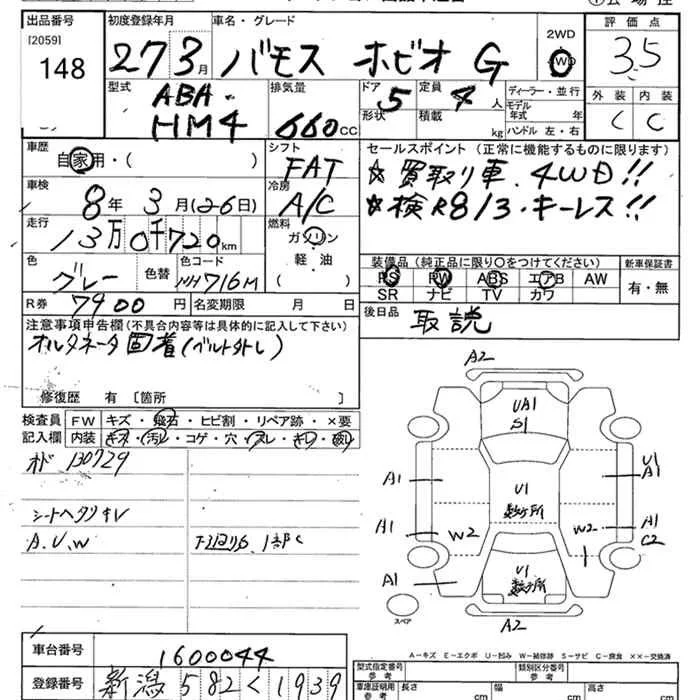 出品番号 初度登録年月 車名・グレード 2WD 評価点
[2059]
148 27 3月 バモス ホビオ G 4WD 3.5
型式 排気量 ドア 定員 ディーラー・並行 外装 内装
ABA- 5 4人 モデル年式 年 C C
HM4 660cc 形状 積載 kg ハンドル 左・右
車歴 シフト セールスポイント (正常に機能するものに限ります)
自家用・( ) FAT ☆買取り車.4WD!!
車検 冷房 ☆検R8/3・キーレス!!
8年 3月(26日) A/C
走行 燃料
13万0千720km ガソリン
色 色コード 軽・油 装備品(純正品に限り○をつけてください) 新車保証書
グレー 色替 NH716M ( ) PS PW ABS エアB AW 有・無
SR ナビ TV カワ
R券 7900円 名変期限 月 日 後日品 取説
注意事項申告欄(不具合内容等は具体的に記入して下さい)
オルタネータ固着(ベルト外し)
修復歴 有 [箇所 ] A2
検査員 FW キズ・飛石・ヒビ割・リペア跡・×要 UA1
記入欄 内装 キズ・汚レ・コゲ・穴・スレ・キレ・破レ S1
130729 A1 U1 U1 A1
シートヘタリ キレ A1 W2 W2 A1 C2
A.U.W 下回りS.1部C
A1 U1
スペア A2
A-キズ E-エクボ U-凹み W-補修跡 S-サビ C-腐食 XX-交換済
車台番号 1600044 型式指定番号 参考 類別区分番号 参考
登録番号 新潟582く1939 車庫証明用 参考 長さ cm 幅 cm 高さ cm